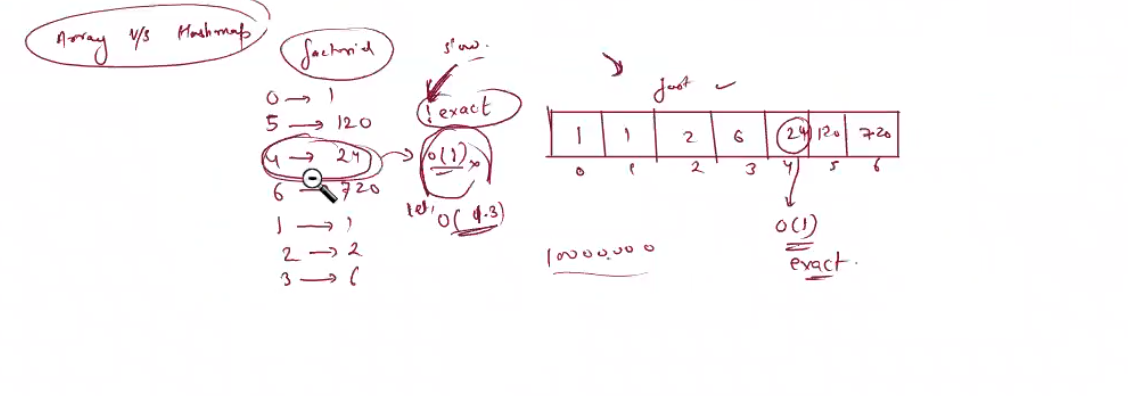 Array V/S Hashmap
factorial
slow.
0 → 1
5 → 120
4 → 24
6 → 720
1 → 1
2 → 2
3 → 6
! exact
O(1)
O(1.3)
fast ✓
1 1 2 6 24 120 720
0 1 2 3 4 5 6
O(1)
exact.